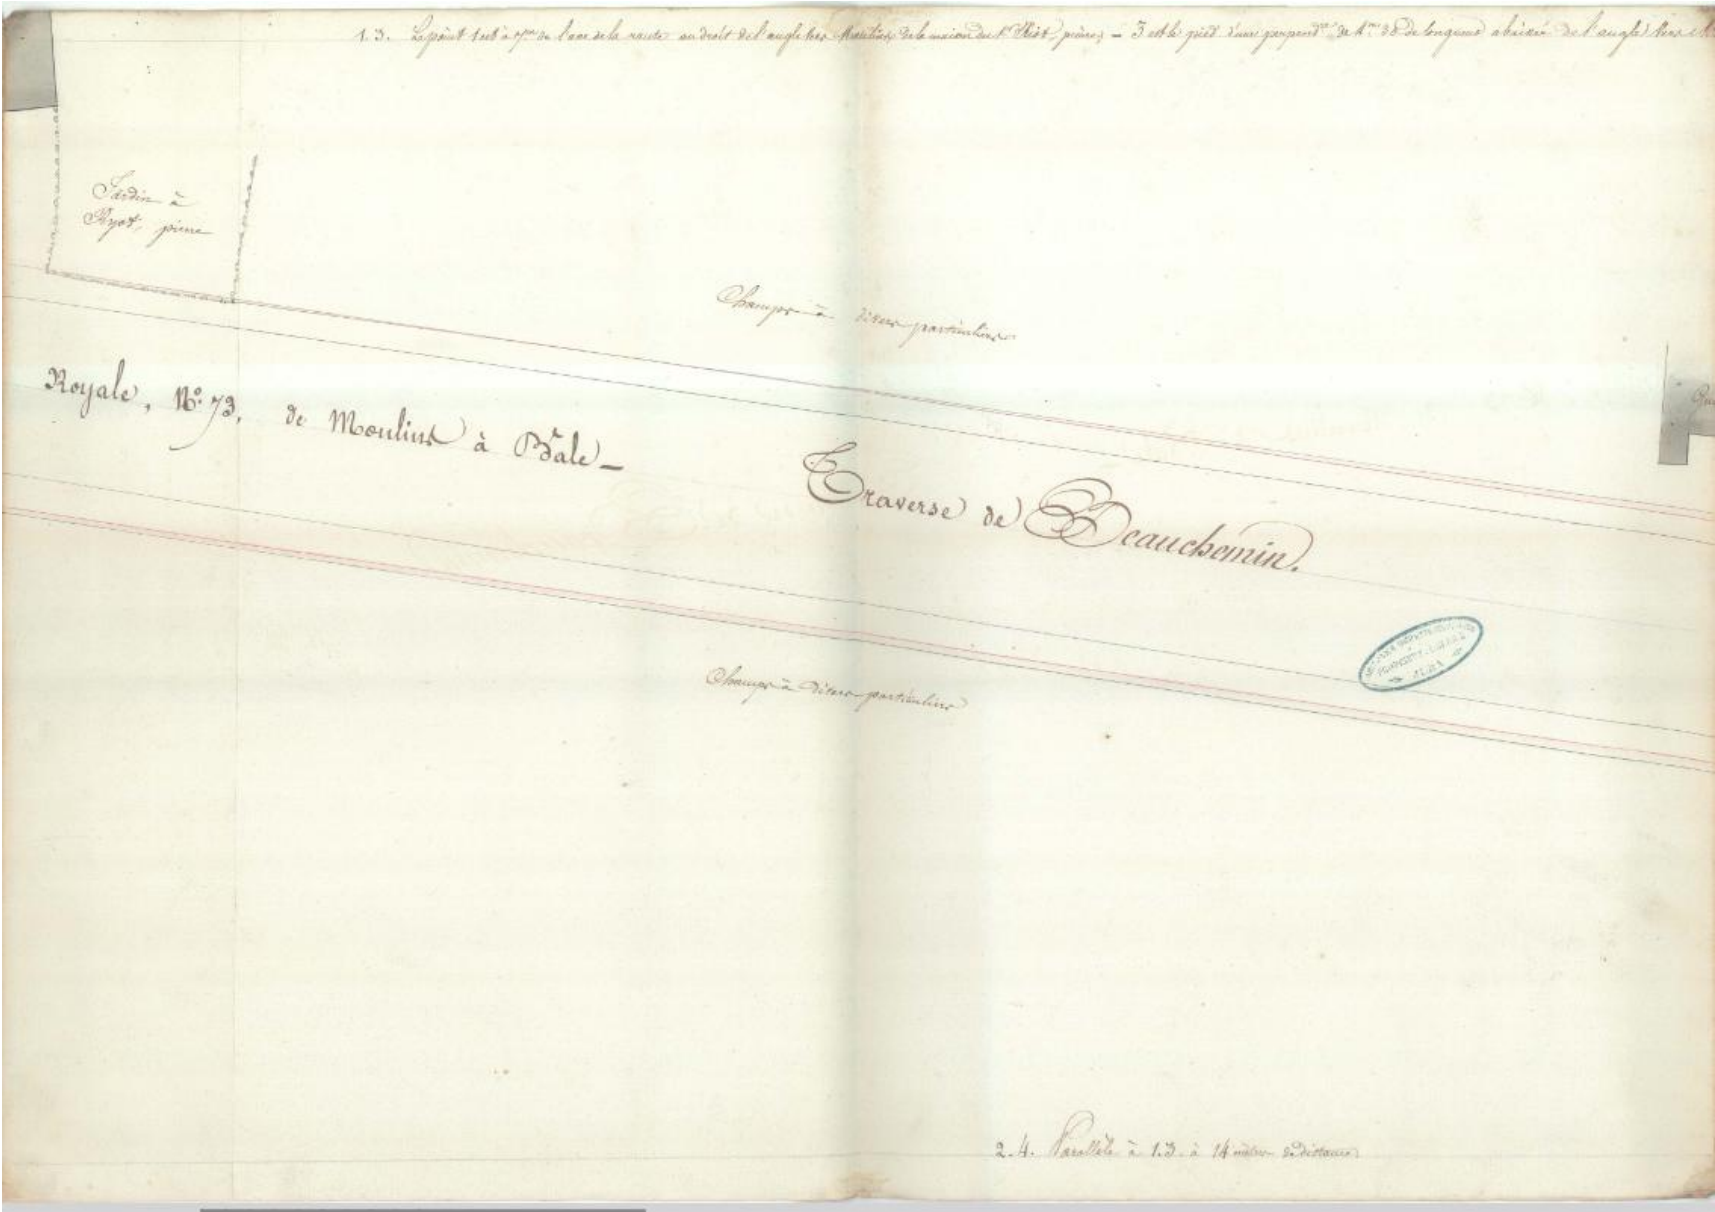 1. 3. Le point 1 est à 7m de l'axe de la route au droit de l'angle vers Moulins, de la maison du Sr pierre, – 3 est le pied d'une perpendre de 1m 38 de longueur abaissée de l'angle vers
Jardin à
Ryot, pierre
Champs à divers particuliers
Royale, No. 73, de Moulins à Bâle –
Traverse de Beauchemin.
JURA
Champs à divers particuliers
2. 4. Parallèle à 1.3. à 14 mètres de distance